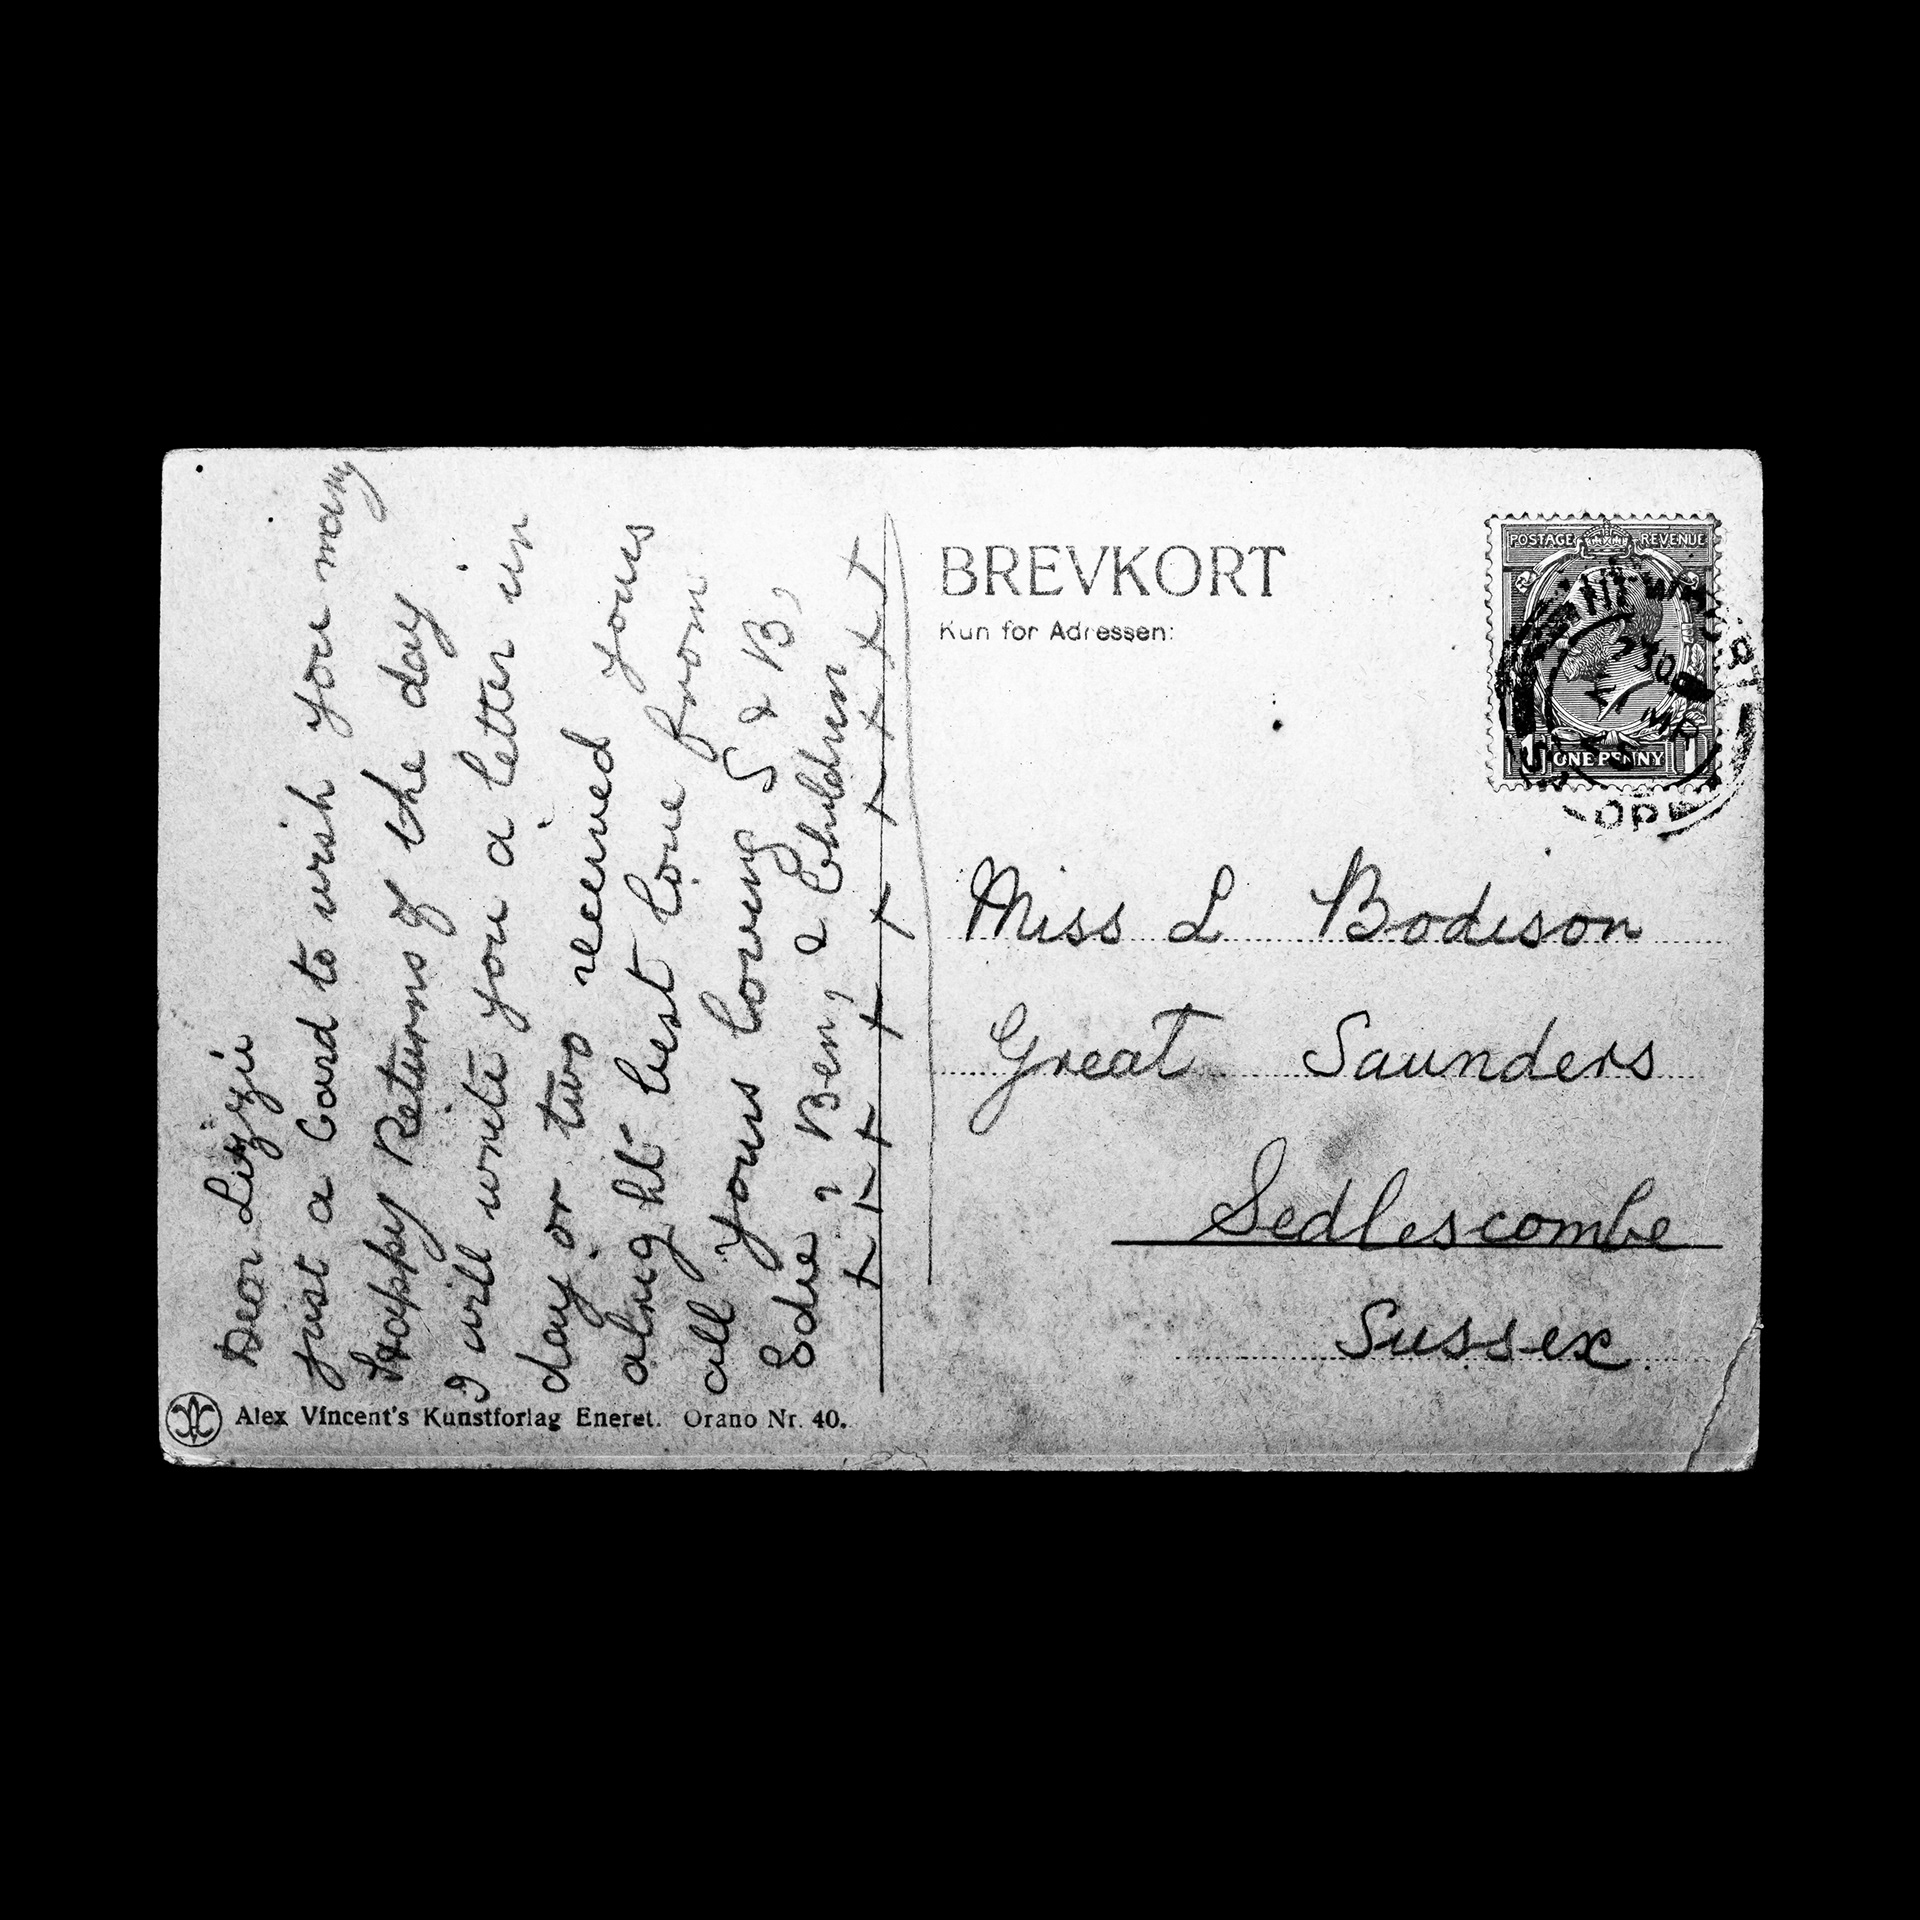 Dear Lizzie
just a Card to wish you many
Happy Returns of the day
I will write you a letter in
day or two received yours
alright best love from
all yours loving S & B,
Edie, Ben, & Children
+ + + + + + + + + +
Alex Vincent's Kunstforlag Eneret. Orano Nr. 40.
BREVKORT
Kun for Adressen:
POSTAGE REVENUE
1 ONE PENNY 1
Miss L Bodison
Great Saunders
Sedlescombe
Sussex